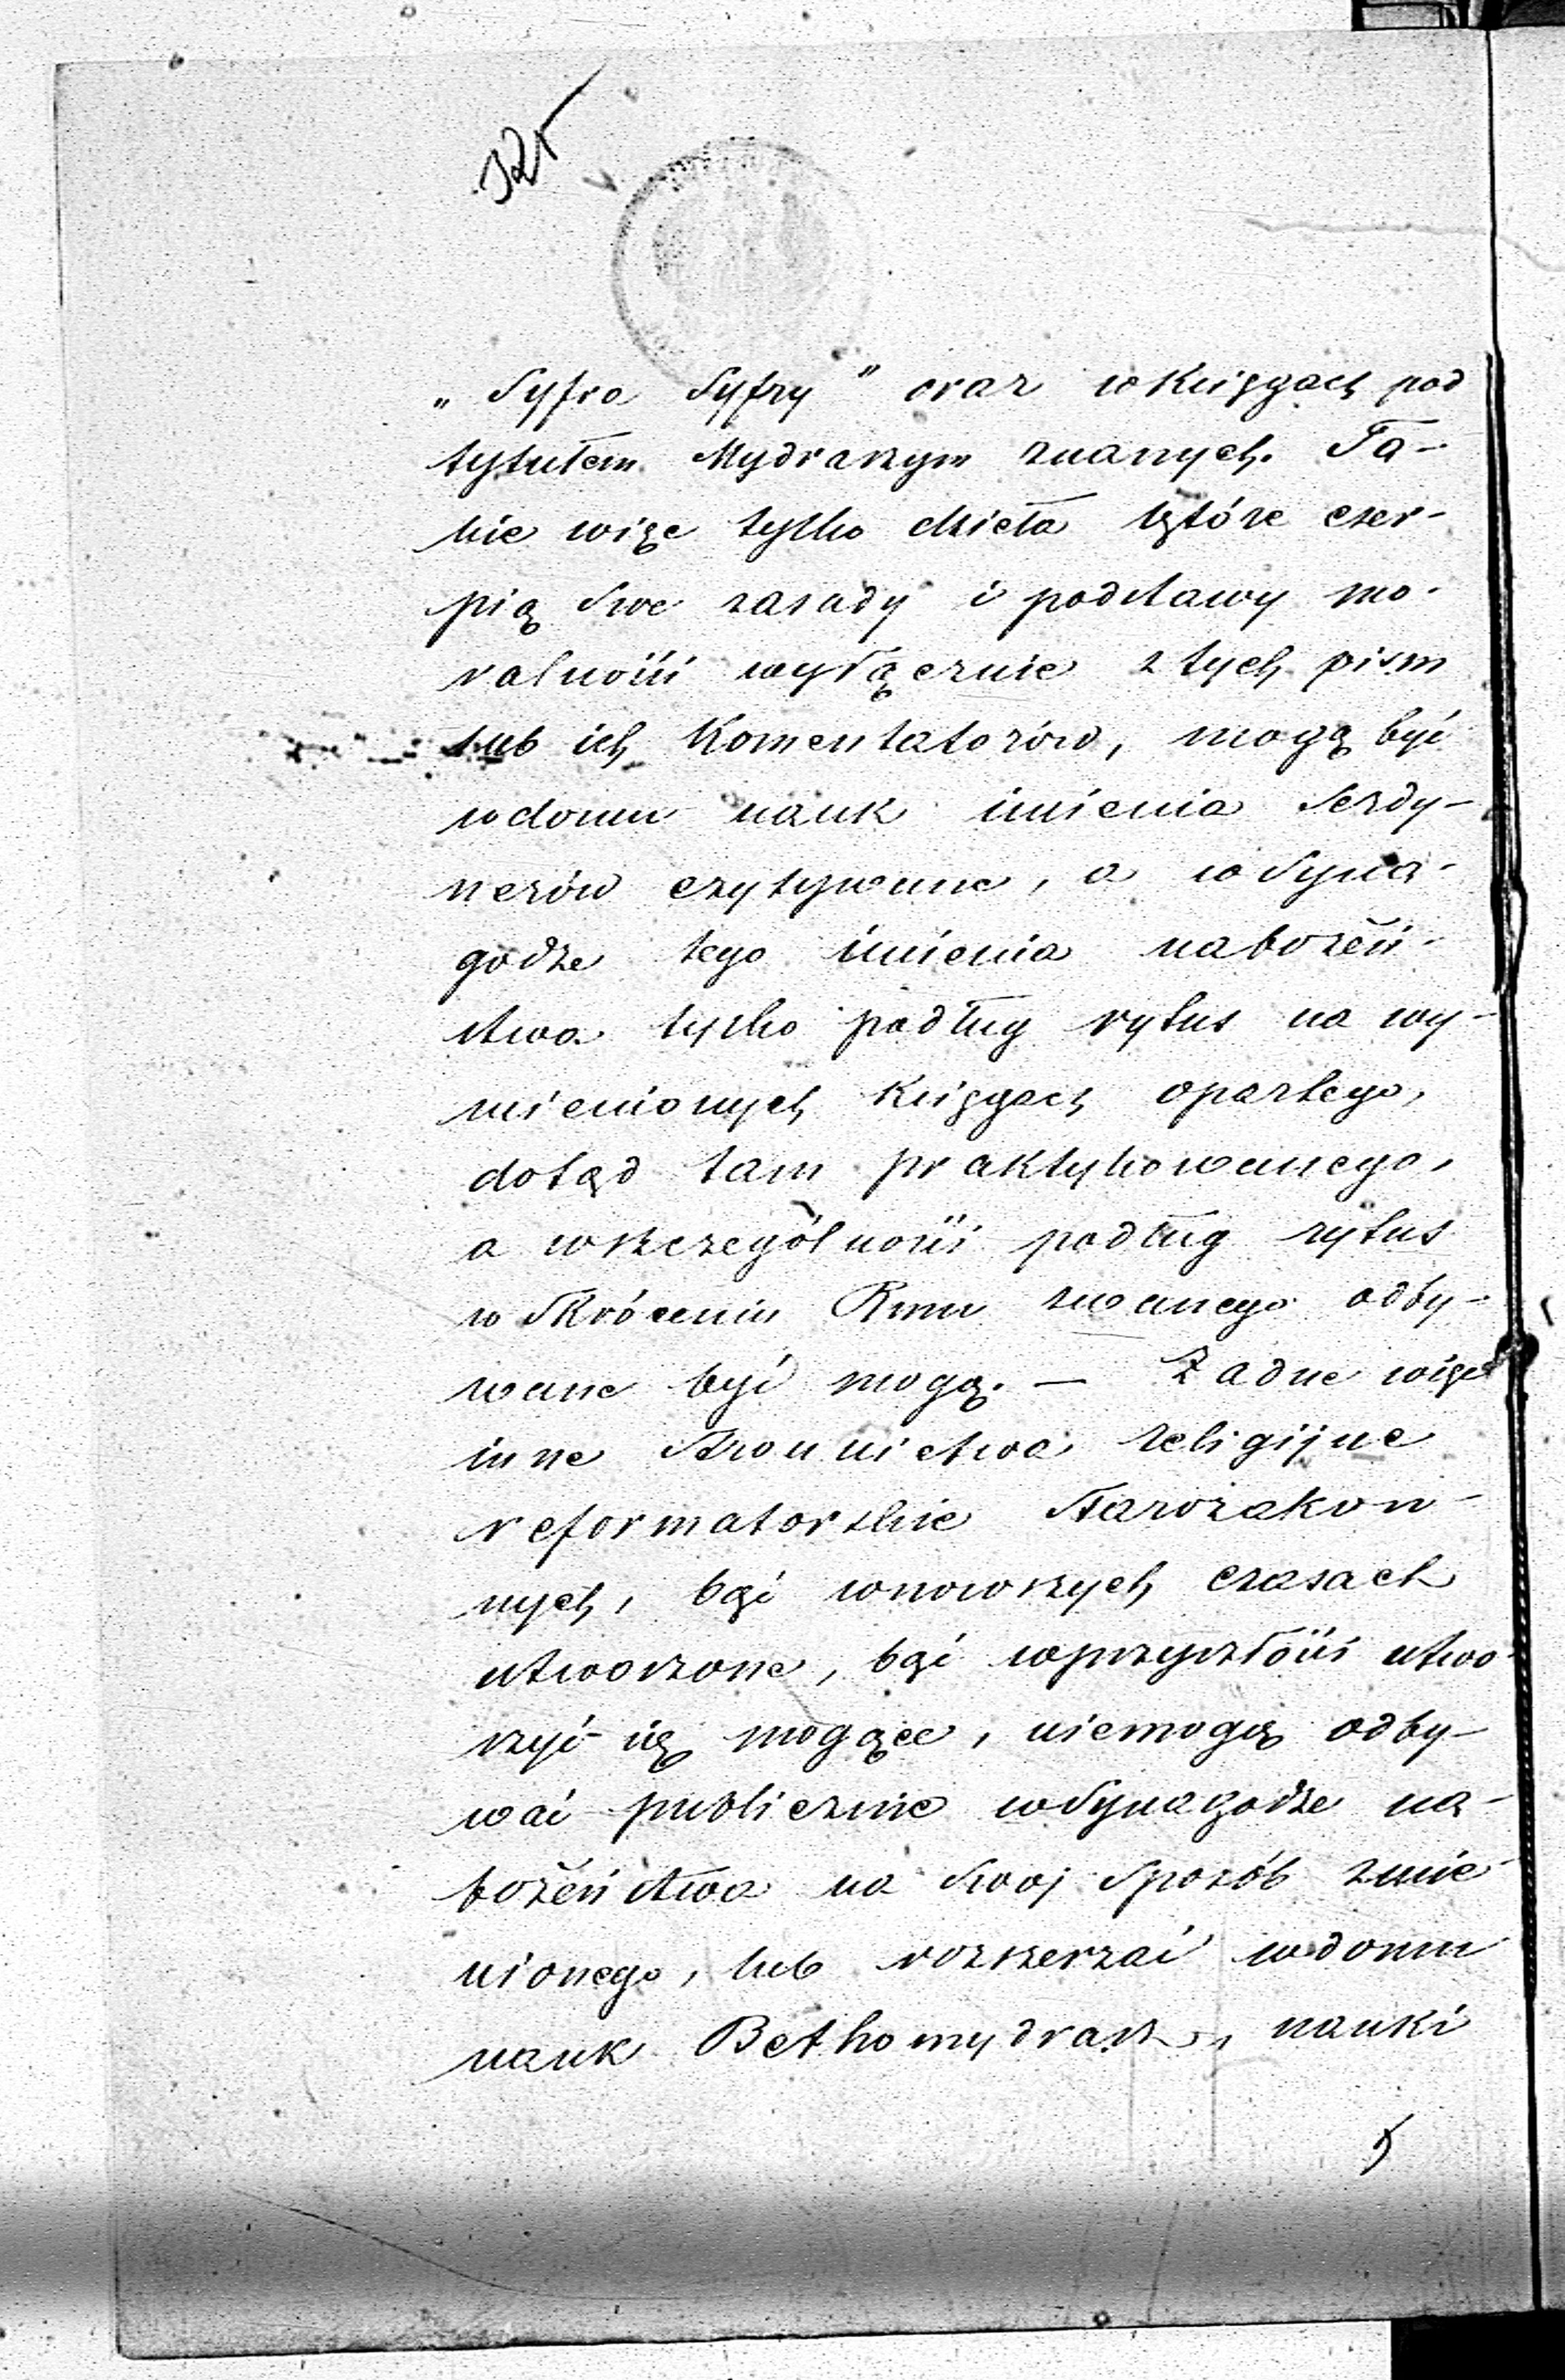 325
„Syfra Syfry" oraz w Księgach pod
tytułem Mydraszym znanych. Ta-
kie więc tylko dzieła które czer-
pią swe zasady i podstawy mo-
ralności wyłącznie z tych pism
lub ich Komentatorów, mogą być
w domu nauk imienia Serdy-
nerów czytywane, a w Syna-
godze tego imienia nabożeń-
stwa tylko podług rytus na wy-
mienionych Księgach opartego,
dotąd tam praktykowanego,
a w szczególności podług rytus
w skróceniu Rmu zwanego odby-
wane być mogą. — Żadne więc
inne stronnictwa religijne
reformatorskie Starozakon-
nych, bąć w nowszych czasach
utworzone, bąć w przyszłości utwo-
rzyć się mogące, niemogą odby-
wać publicznie w Synagodze na-
bożeństwa na swoj sposób zmie-
nionego, lub rozszerzać w domu
nauk Bethomydrasz, nauki